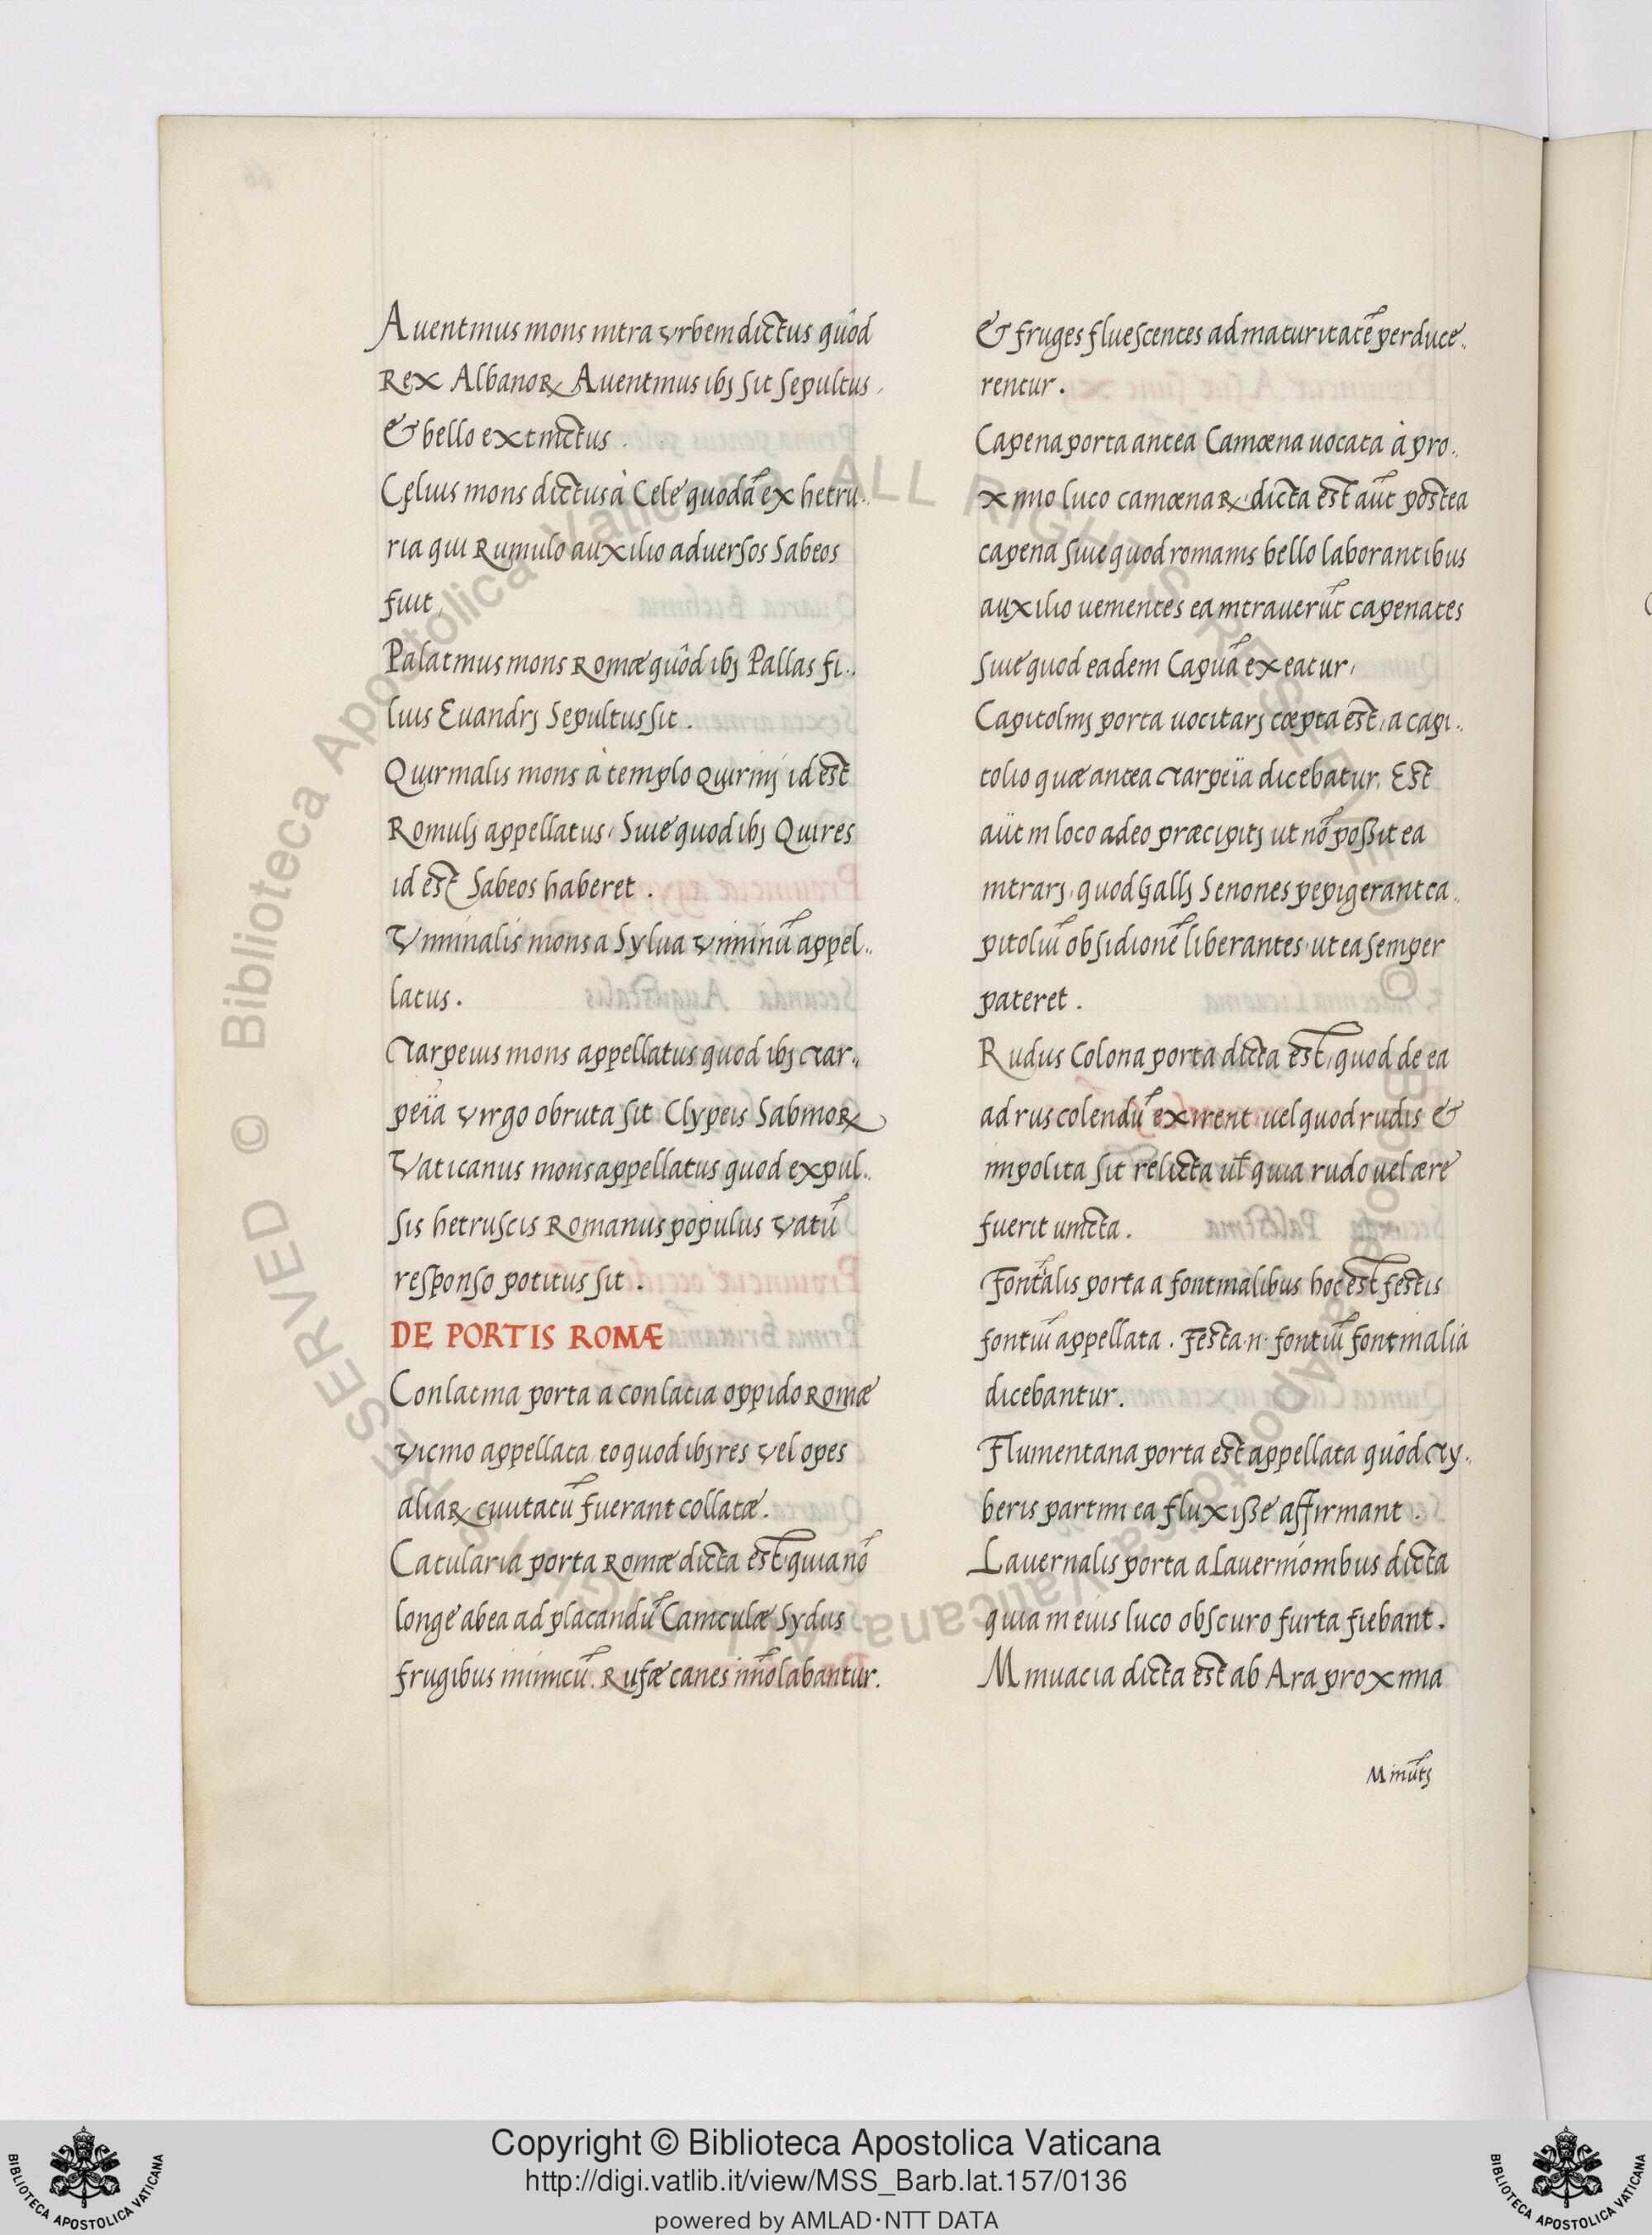 Auentinus mons intra vrbem dictus quôd
Rex Albanoꝝ Auentinus ibj sit sepultus,
& bello extinctus.
Cęlius mons dictus à Cele quodã ex hetru..
ria qui Rumulo auxilio aduersos Sabeos
fuit,
Palatinus mons Romæ quôd ibj Pallas fi..
lius Euandrj Sepultus sit.
Quirinalis mons à templo Quirinj id est
Romulj appellatus, Siue quod ibj Quires
id est Sabeos haberet.
Viminalis mons a Sylua viminũ appel..
latus.
Tarpeius mons appellatus quod ibj Tar..
peïa virgo obruta sit Clypeis Sabinoꝝ
Vaticanus mons appellatus quod expul..
sis hetruscis Romanus populus vatũ
responso potitus sit.
DE PORTIS ROMÆ
Conlatina porta a conlatia oppido Romæ
vicino appellata, eo quod ibj res vel opes
aliaꝝ ciuitatũ fuerant collatæ.
Catularia porta Romæ dicta est, quia nõ
longe ab ea ad placandũ Caniculæ Sydus
frugibus inimicũ. Rufæ canes im̃olabantur.
& fruges fluescentes ad maturitatẽ perduce..
rentur.
Capena porta antea Camœna uocata à pro..
ximo luco camœnaꝝ, dicta est aũt postea
capena siue quod romanis bello laborantibus
auxilio uenientes ea intrauerũt capenates
siue quod eadem Capuã exeatur,
Capitolinj porta uocitarj cœpta est, a capi..
tolio quæ antea Tarpeïa dicebatur, Est
aũt in loco adeo præcipitj ut nõ poßit ea
intrarj, quod Gallj Senones pepigerant ca..
pitoliũ obsidionẽ liberantes, ut ea semper
pateret.
Rudus Colona porta dicta est, quod de ea
ad rus colendũ exirent, uel quod rudis &
impolita sit relicta uł quia rudo uel ære
fuerit uincta.
Fontãlis porta a fontinalibus hoc est festis
fontiũ appellata. Festa .n. fontiũ fontinalia
dicebantur.
Flumentana porta est appellata quôd Ty..
beris partim ea fluxiße affirmant.
Lauernalis porta a Lauernionibus dicta
quia in eius luco obscuro furta fiebant.
Minuacia dicta est ab Ara proxima
Minũtj
Copyright © Biblioteca Apostolica Vaticana
http://digi.vatlib.it/view/MSS_Barb.lat.157/0136
powered by AMLAD·NTT DATA
BIBLIOTECA APOSTOLICA VATICANA
BIBLIOTECA APOSTOLICA VATICANA